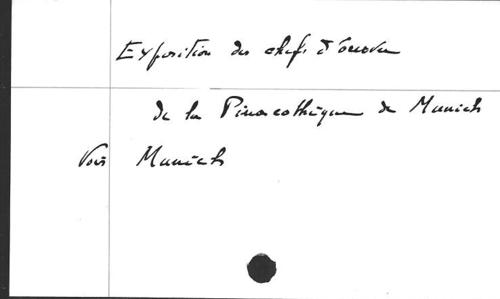 Exposition des chefs d'oeuvre
de la Pinacothèque de Munich
Voir Munich